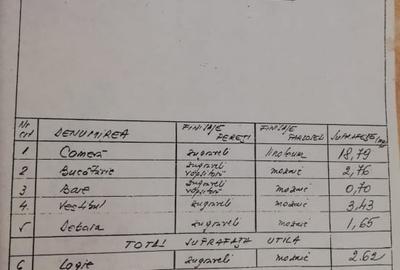 Nr crt DENUMIREA FINISAJE PEREȚI FINISAJE PARDOSELI SUPRAFEȚE
1 Cameră zugrăveli linoleum 18,79
2 Bucătărie zugrăveli vopsitorii mozaic 2,76
3 Baie zugrăveli vopsitorii mozaic 0,70
4 Vestibul zugrăveli mozaic 3,43
5 Debara zugrăveli mozaic 1,65
TOTAL SUPRAFAȚA UTILĂ
6 Logie zugrăveli mozaic 2.62